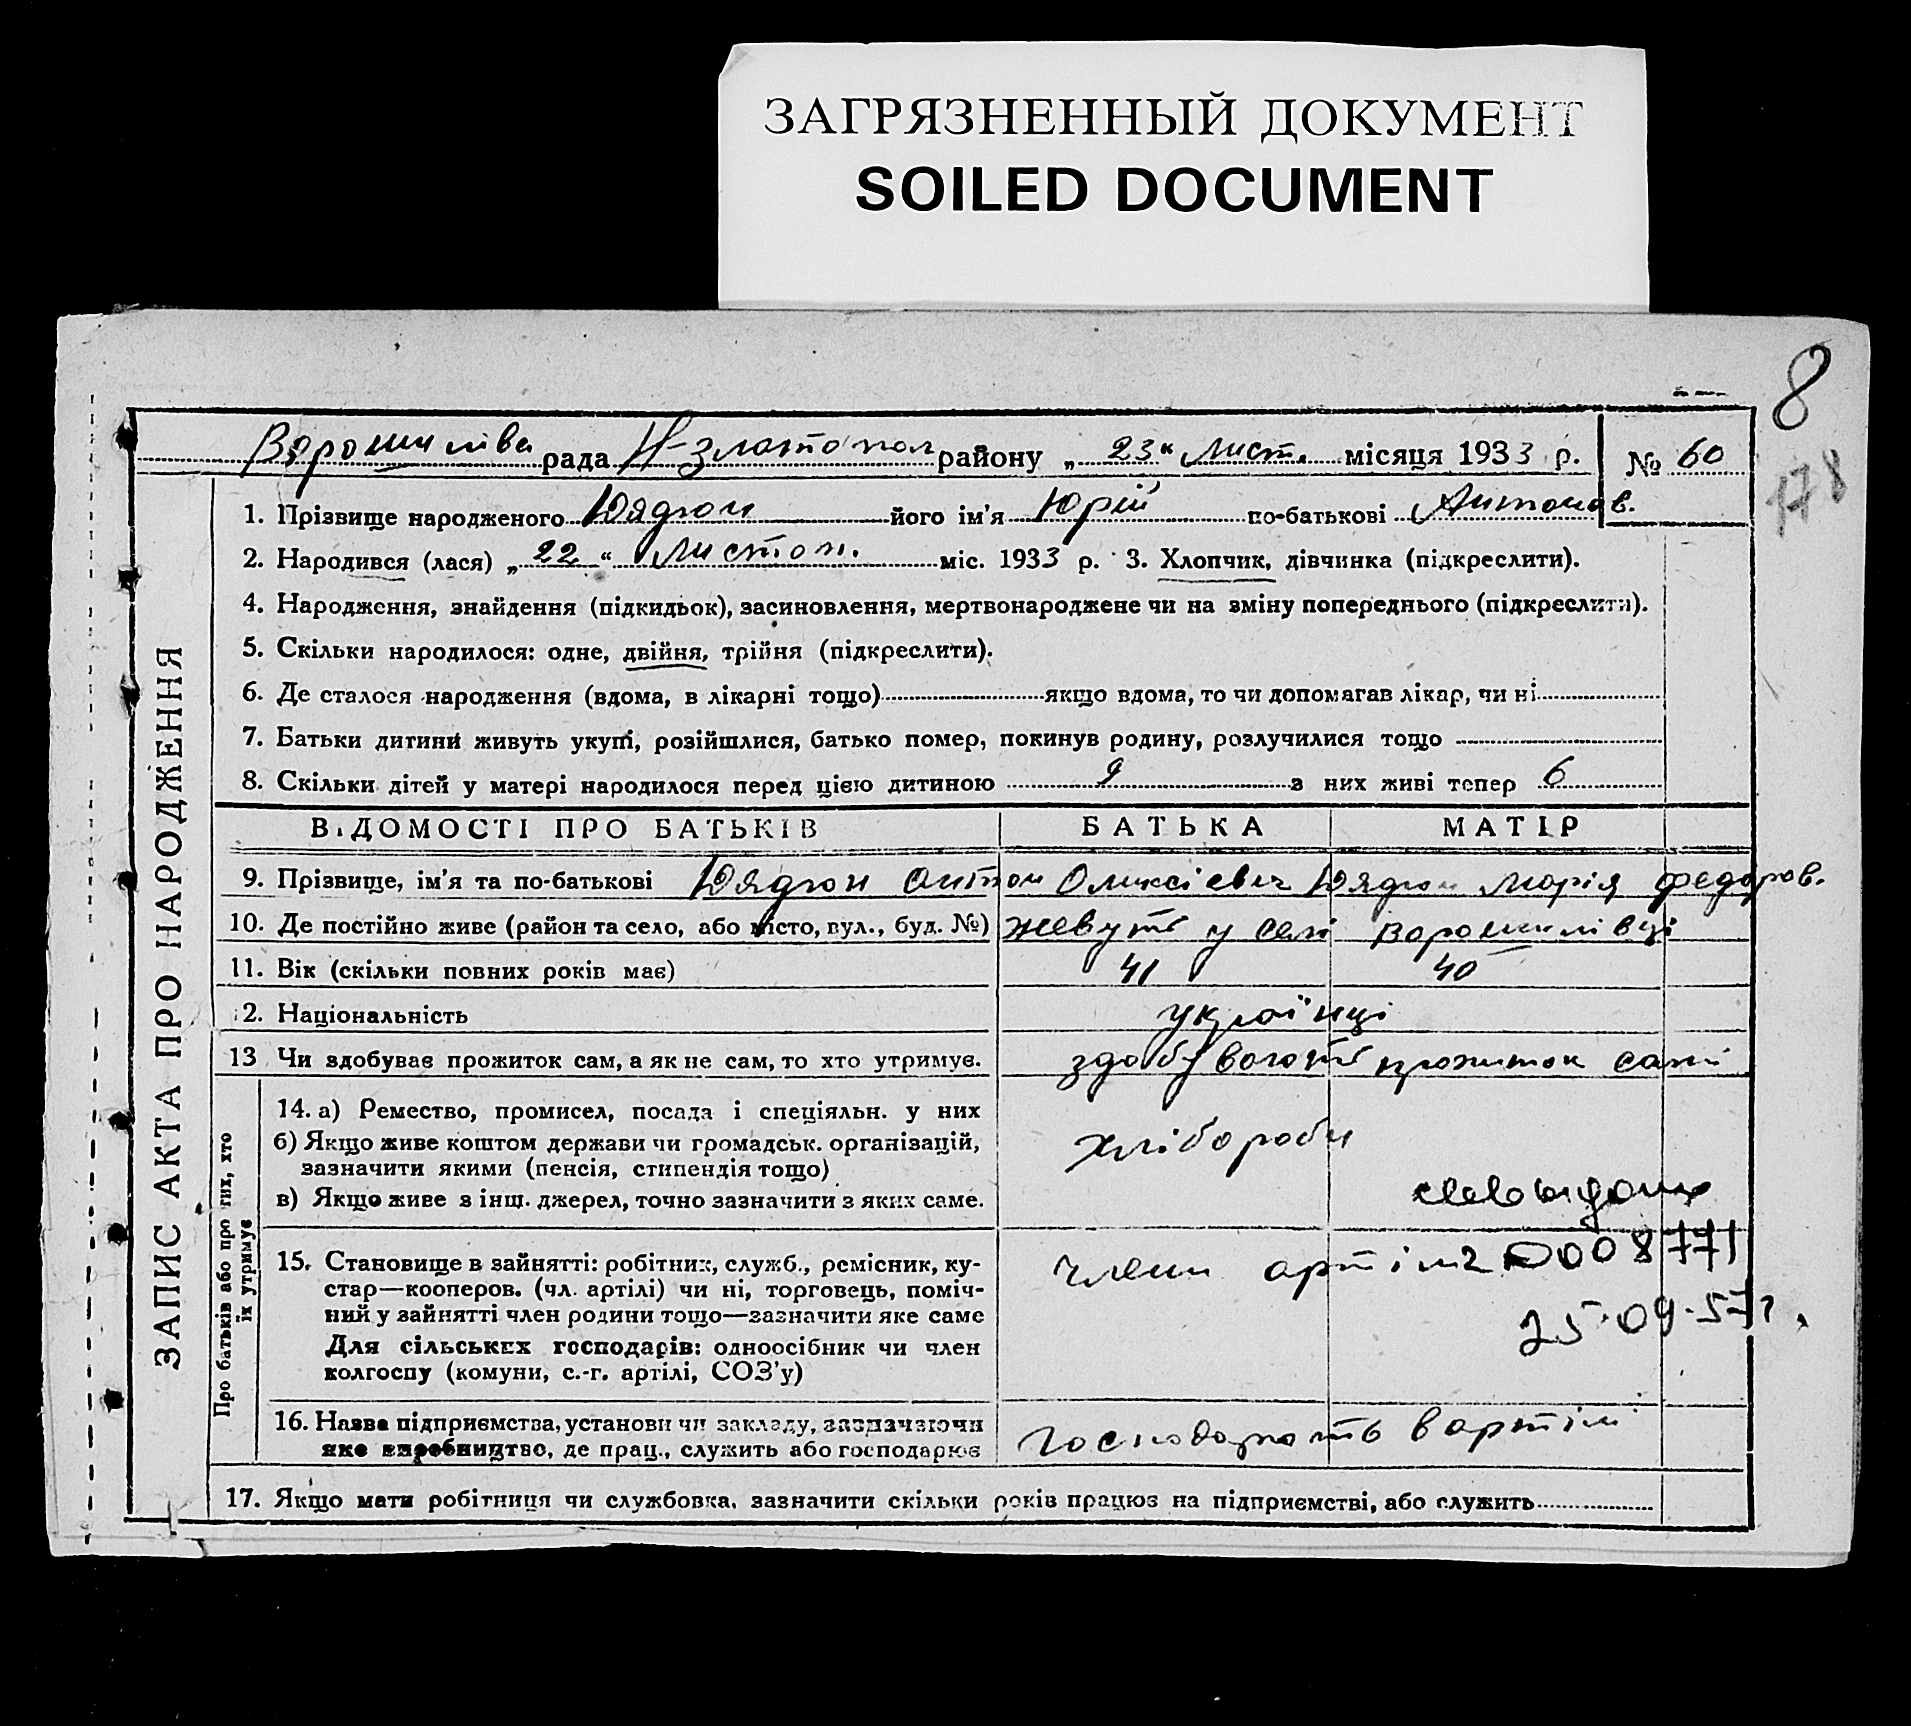 ЗАГРЯЗНЕННЫЙ ДОКУМЕНТ
SOILED DOCUMENT
8
178
ЗАПИС АКТА ПРО НАРОДЖЕННЯ
рада Н-златопол району „23“ лист. місяця 1933 р. № 60
1. Прізвище народженого його ім'я Юрій по-батькові Антонов.
2. Народився (лася) „22“ листоп. міс. 1933 р. 3. Хлопчик, дівчинка (підкреслити).
4. Народження, знайдення (підкидьок), засиновлення, мертвонароджене чи на зміну попереднього (підкреслити).
5. Скільки народилося: одне, двійня, трійня (підкреслити).
6. Де сталося народження (вдома, в лікарні тощо) якщо вдома, то чи допомагав лікар, чи ні
7. Батьки дитини живуть укупі, розійшлися, батько помер, покинув родину, розлучилися тощо
8. Скільки дітей у матері народилося перед цією дитиною 9 з них живі тепер 6
ВІДОМОСТІ ПРО БАТЬКІВ БАТЬКА МАТІР
9. Прізвище, ім'я та по-батькові Антон Олексієвич Марія Федоров.
10. Де постійно живе (район та село, або місто, вул., буд. №) жевуть у селі Ворошилівці
11. Вік (скільки повних років має) 41 40
12. Національність українці
13 Чи здобуває прожиток сам, а як не сам, то хто утримує. здобувають прожиток самі
Про батьків або про тих, хто їх утримує
14. а) Ремество, промисел, посада і спеціяльн. у них
б) Якщо живе коштом держави чи громадськ. організацій, хлібороби
зазначити якими (пенсія, стипендія тощо)
в) Якщо живе з інш. джерел, точно зазначити з яких саме.
15. Становище в зайнятті: робітник, служб., ремісник, ку- члени артілі 0008771
стар—кооперов. (чл. артілі) чи ні, торговець, поміч-
ний у зайнятті член родини тощо—зазначити яке саме 25.09.57г.
Для сільських господарів: одноосібник чи член
колгоспу (комуни, с.-г. артілі, СОЗ'у)
16. Назва підприємства, установи чи закладу, зазначаючи
яке виробництво, де прац., служить або господарює господарють в артілі
17. Якщо мати робітниця чи службовка, зазначити скільки років працює на підприємстві, або служить